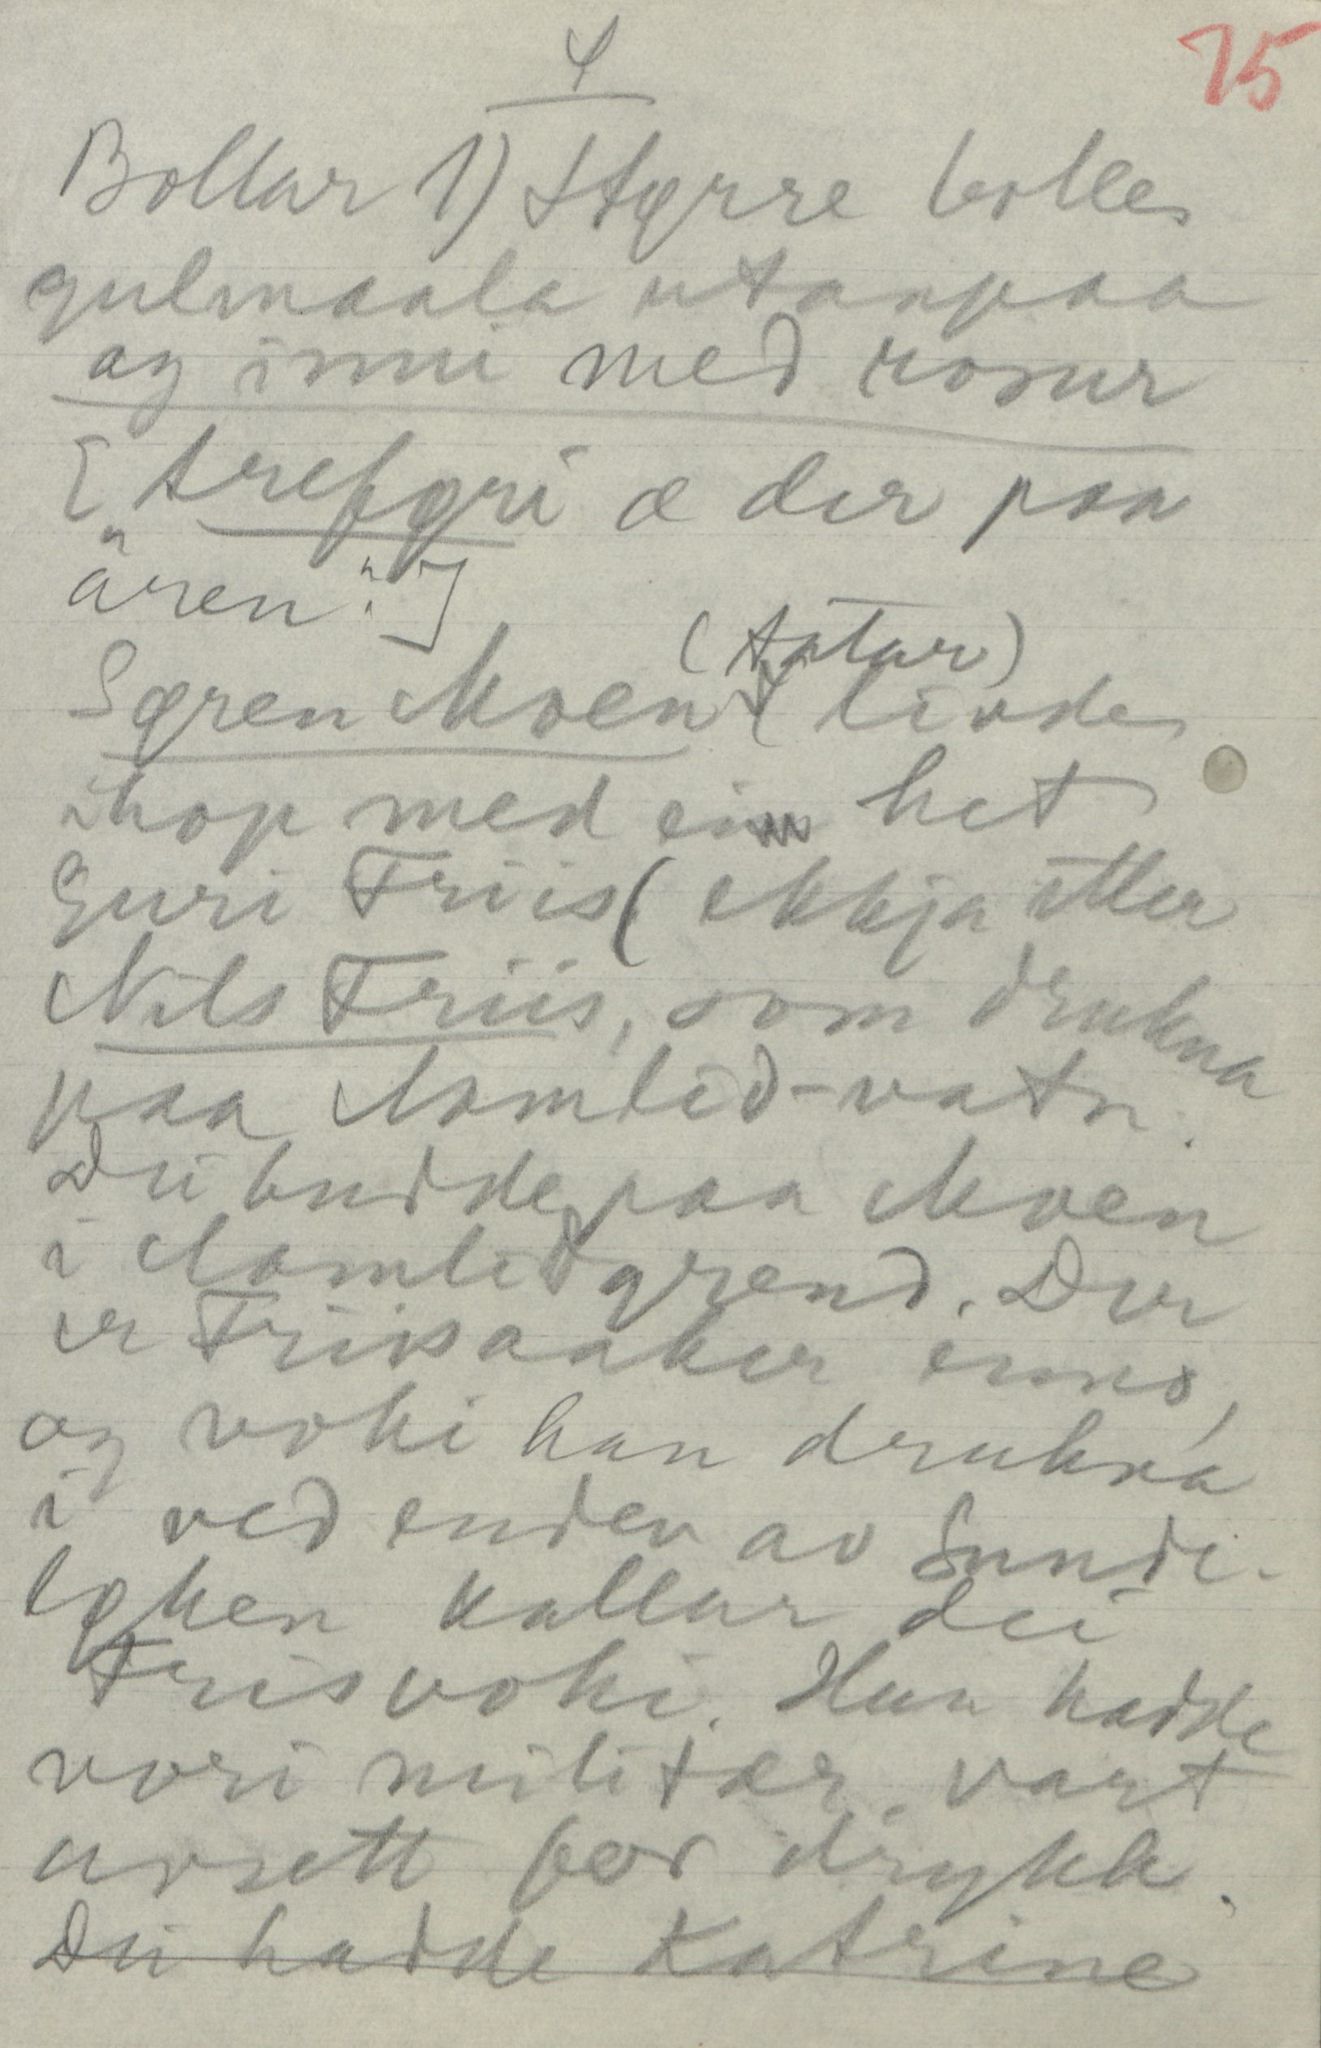 4
75
Bollar 1) Større bolle,
gulmaala utanpaa
og inni med rosur
[ "treføri æ der paa
åren". ]
(tatar)
Søren Moen livde
ihop med ei het
Guri Friis (ekkja etter
Nils Friis, som drukna
paa Namlid-vatn.
Dei budde paa Moen
i Namlidgrend. Der
er Friisaaker enno,
og voki han drukna
i ved enden av Sunde-
løken kallar dei
Frisvoki. Han hadde
vori militær, vart
avsett for drykk.
Dei hadde Katrine